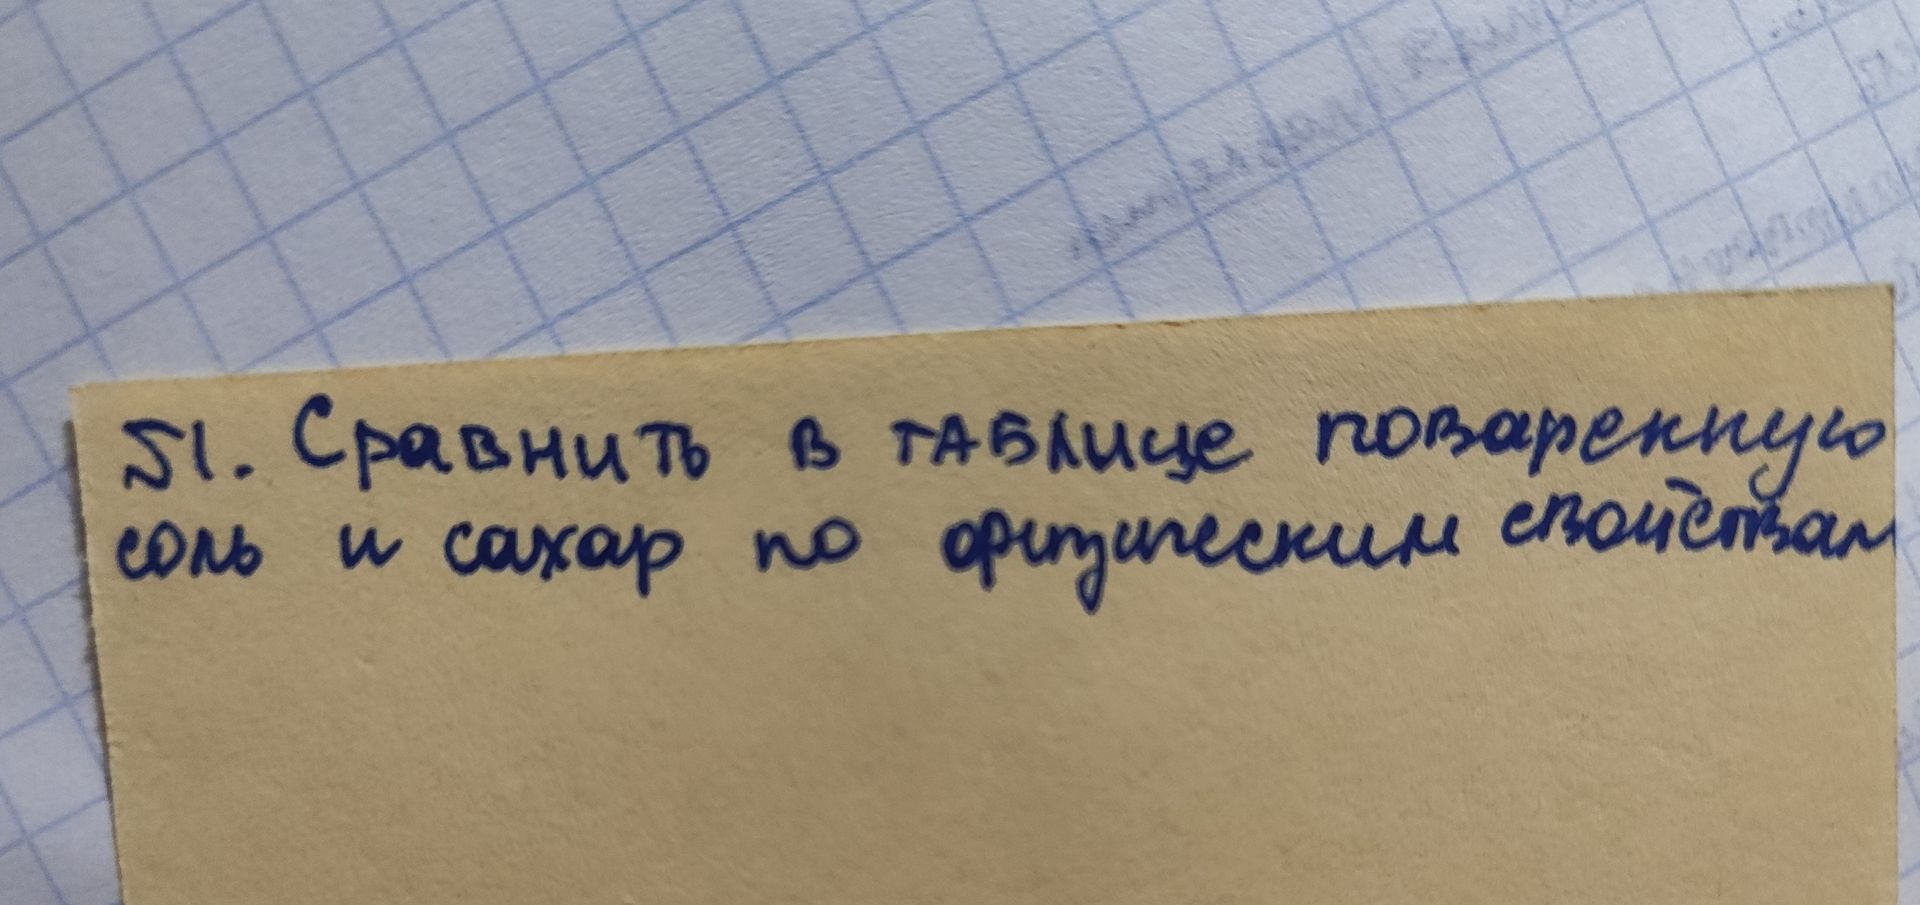 51. Сравнить в таблице поваренную
соль и сахар по физическим свойствам